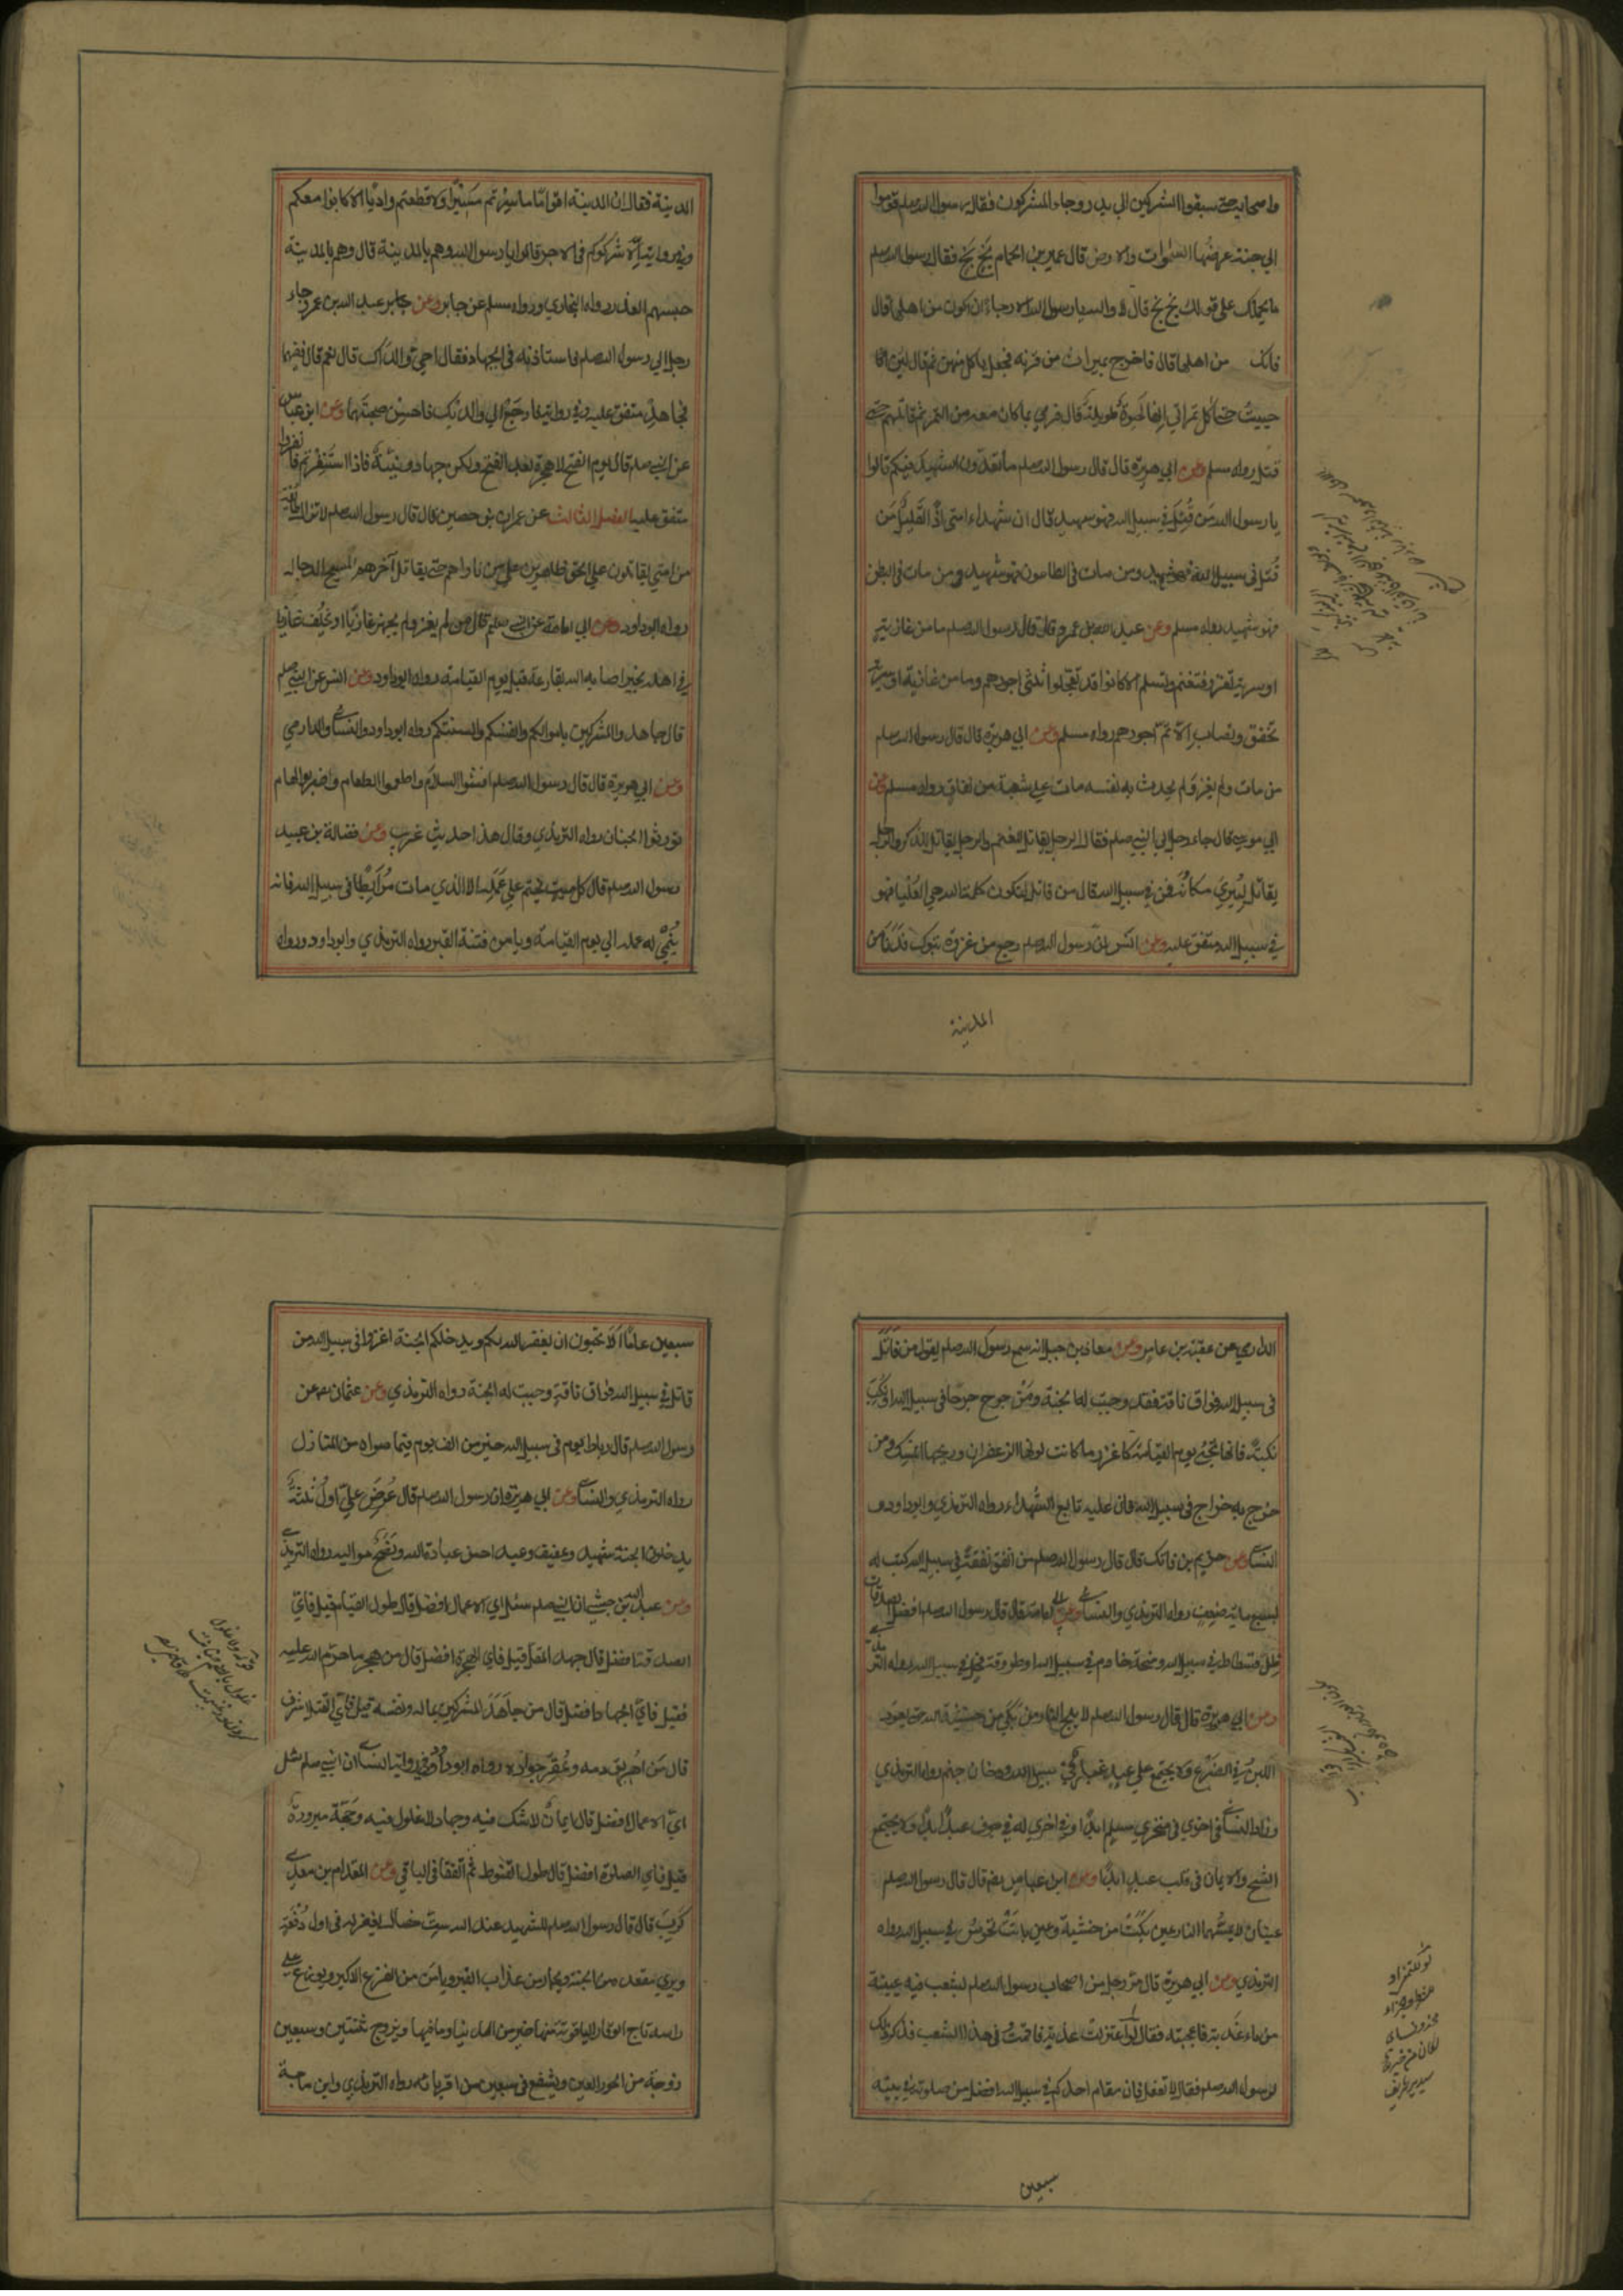 واصحابه حتى سبقوا المشركين الي بدر وجاء المشركون فقال رسول الله صلعم قوموا
الي جنة عرضها السموات والارض قال عمير بن الحمام بَخ بَخ فقال رسول الله صلعم
ما يحملك على قولك بخ بخ قال لا والله يا رسول الله الا رجاءَ ان اكون من اهلها قال
فانك من اهلها قال فاخرج تميرات من قرنه فجعل ياكل منهن ثم قال لئن انا
حييتُ حتى آكل تمراتي انها لحيوة طويلة قال فرمي بما كان معه من التمر ثم قاتلهم حتى
قتل رواه مسلم وعن ابي هريرة قال قال رسول الله صلعم ما تعدّون الشهيد فيكم قالوا
يا رسول الله مَن قُتِلَ في سبيل الله فهو شهيد قال ان شهداء امتي اذًا لقليلٌ مَن
قُتل في سبيل الله فهو شهيد ومن مات في الطاعون فهو شهيد ومن مات في البطن
فهو شهيد رواه مسلم وعن عبد الله بن عمرو قال قال رسول الله صلعم ما من غازية
او سرية تغزو فتغنم وتسلم الا كانوا قد تعجلوا ثلثى اجورهم وما من غازية او سرية
تخفق وتصاب الا تمّ اجورهم رواه مسلم وعن ابي هريرة قال قال رسول الله صلعم
من مات ولم يغز ولم يحدث به نفسه مات على شعبة من نفاق رواه مسلم وعن
ابي موسى قال جاء رجل الي النبي صلعم فقال الرجل يقاتل للمغنم والرجل يقاتل للذكر والرجل
يقاتل ليُرِيَ مكانُه فمن في سبيل الله قال من قاتل لتكون كلمة الله هي العُليا فهو
في سبيل الله متفق عليه وعن انس انّ رسول الله صلعم رجع من غزوة تبوك فدَنَا من
المدينة
المدينة فقال ان بالمدينة اقوامًا ما سِرْتم مَسيرًا ولا قطعتم واديًا الا كانوا معكم
وفي رواية اِلّا شركوكم في الاجر قالوا يا رسول الله وهم بالمدينة قال وهم بالمدينة
حبسهم العذر رواه البخاري ورواه مسلم عن جابر وعن جابر عبد الله بن عمرو جاء
رجل الي رسول الله صلعم فاستاذنه في الجهاد فقال احيّ والداك قال نعم قال ففيهما
فجاهِدْ متفق عليه وفي رواية فارجع الي والديك فاحسِن صحبتَهما وعن ابن عباس
عن النبي صلعم قال يوم الفتح لا هجرة بعد الفتح ولكن جهاد ونية فاذا استُنفِرتم فانفروا
متفق عليه الفصل الثالث عن عمران بن حصين قال قال رسول الله صلعم لا تزال طائفة
من امتي يقاتلون على الحق ظاهرين على من ناواهم حتى يقاتل آخرهم المسيح الدجال
رواه ابو داود وعن ابي امامة عن النبي صلعم قال من لم يغز ولم يجهز غازيا او يخلف غازيا
في اهله بخير اصابه الله بقارعة قبل يوم القيامة رواه ابو داود وعن انس عن النبي صلعم
قال جاهدوا المشركين باموالكم وانفسكم والسنتكم رواه ابو داود والنسائى والدارمي
وعن ابي هريرة قال قال رسول الله صلعم افشوا السلام واطعموا الطعام واضربوا الهام
تورثوا الجنان رواه الترمذي وقال هذا حديث غريب وعن فضالة بن عبيد
رسول الله صلعم قال كل ميت يختم على عَمَلِه الا الذي مات مُرابطا في سبيل الله فانه
يُنمّى له عمله الي يوم القيامة ويامن فتنة القبر رواه الترمذي وابو داود ورواه
الدارمي عن عقبة بن عامر وعن معاذ بن جبل انه سمع رسول الله صلعم يقول من قاتل
في سبيل الله فواق ناقة فقد وجبت له الجنة ومَن جرح جرحًا في سبيل الله او نكب
نكبة فانها تجئ يوم القيامة كاغزر ما كانت لونها الزعفران وريحها المسك ومن
خرج به خراج في سبيل الله فان عليه طابع الشهداء رواه الترمذي وابو داود و
النسائى وعن خريم بن فاتك قال قال رسول الله صلعم من انفق نفقة في سبيل الله كتب له
بسبع ماية ضعف رواه الترمذي والنسائى وعن ابي امامة قال قال رسول الله صلعم افضل الصدقات
ظل فسطاط في سبيل الله ومنحة خادم في سبيل الله او طروقة فحل في سبيل الله رواه الترمذي
وعن ابي هريرة قال قال رسول الله صلعم لا يلج النار من بَكَي من خشية الله حتى يعود
اللبن في الضرع ولا يجتمع على عبد غبار في سبيل الله ودخان جهنم رواه الترمذي
وزاد النسائى في اخري في منخري مسلم ابدًا وفي اخري له في جوف عبد ابدًا ولا يجتمع
الشح والايمان في قلب عبد ابدًا وعن ابن عباس رضه قال قال رسول الله صلعم
عينان لا تمسُّهما النار عين بَكَتْ من خشية وعين باتَتْ تحرس في سبيل الله رواه
الترمذي وعن ابي هريرة قال مرّ رجل من اصحاب رسول الله صلعم بشعب فيه عيينة
من ماء عذبة فاعجبته فقال لو اعتزلتُ الناس فاقمتُ في هذا الشعب فذكر ذلك
لرسول الله صلعم فقال لا تفعل فان مقام احدكم في سبيل الله افضل من صلوته في بيته
سبعين
سبعين عامًا اَلَا تحبون ان يغفر الله لكم ويدخلكم الجنة اغزوا في سبيل الله من
قاتل في سبيل الله فواق ناقةٍ وجبت له الجنة رواه الترمذي وعن عثمان رضه عن
رسول الله صلعم قال رباط يوم في سبيل الله خير من الف يوم فيما سواه من المنازل
رواه الترمذي والنسائى وعن ابي هريرة ان رسول الله صلعم قال عُرِضَ عليّ اول ثلثة
يدخلون الجنة شهيد وعفيف وعبد احسن عبادة الله ونصح مواليه رواه الترمذي
وعن عبد الله بن حبشي ان النبي صلعم سئل اي الاعمال افضل قال طول القيام قيل فايّ
الصدقة افضل قال جهد المقل قيل فاي الهجرة افضل قال من هجر ما حرّم الله عليه
فقيل فايّ الجهاد افضل قال من جاهَدَ المشركين بماله ونفسه قيل فايّ القتل اشرف
قال مَن اُهريق دمه وعُقِر جواده رواه ابو داود وفي رواية النسائى ان النبي صلعم سئل
ايّ الاعمال افضل قال ايمانٌ لا شك فيه وجهاد لا غلول فيه وحَجّة مبرورة
قيل فاي الصلوة افضل قال طول القنوط ثم اتفقا في الباقي وعن المقدام بن معدي
كَرِبَ قال قال رسول الله صلعم للشهيد عند الله ست خصال يغفر له في اول دُفْعَةٍ
ويري مقعده من الجنة ويجار من عذاب القبر ويامن من الفزع الاكبر ويوضع على
راسه تاج الوقار الياقوتة منها خير من الدنيا وما فيها ويزوج ثنتين وسبعين
زوجة من الحور العين ويشفع في سبعين من اقربائه رواه الترمذي وابن ماجة